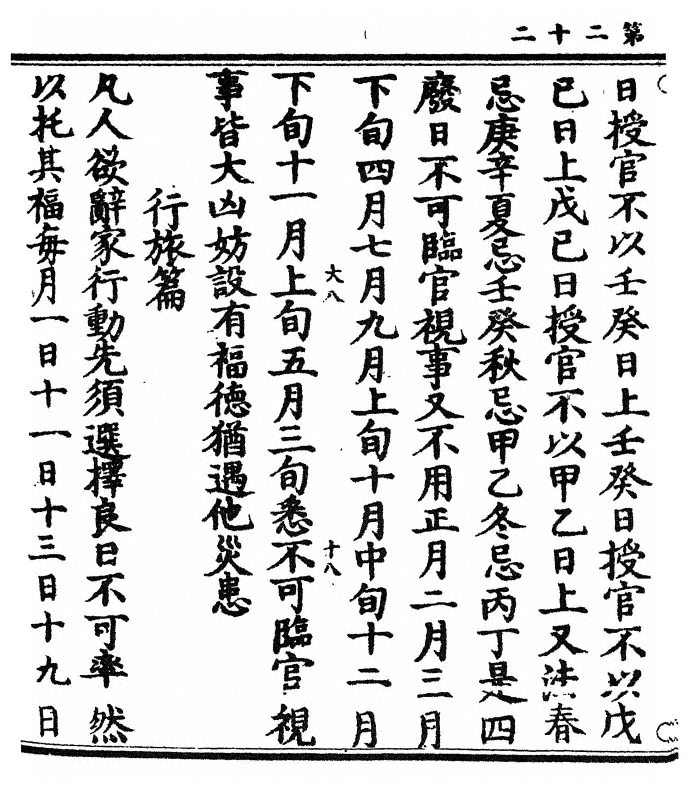 第二十二
日授官不以壬癸日上壬癸日授官不以戊
已日上戊已日授官不以甲乙日上又法春
忌庚辛夏忌壬癸秋忌甲乙冬忌丙丁是四
廢日不可臨官視事又不用正月二月三月
下旬四月七月九月上旬十月中旬十二月
大八
十八
下旬十一月上旬五月三旬悉不可臨官視
事皆大凶妨設有福德猶遇他災患
行旅篇
凡人欲辭家行動先須選擇良日不可率然
以托其福每月一日十一日十三日十九日